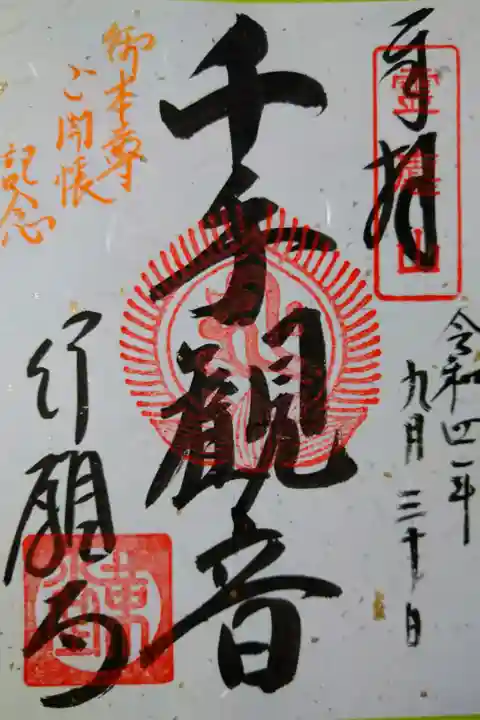 奉拝
靈麀山
令和四年
九月三十日
千手観音
行願寺
御本尊
ご開帳
記念